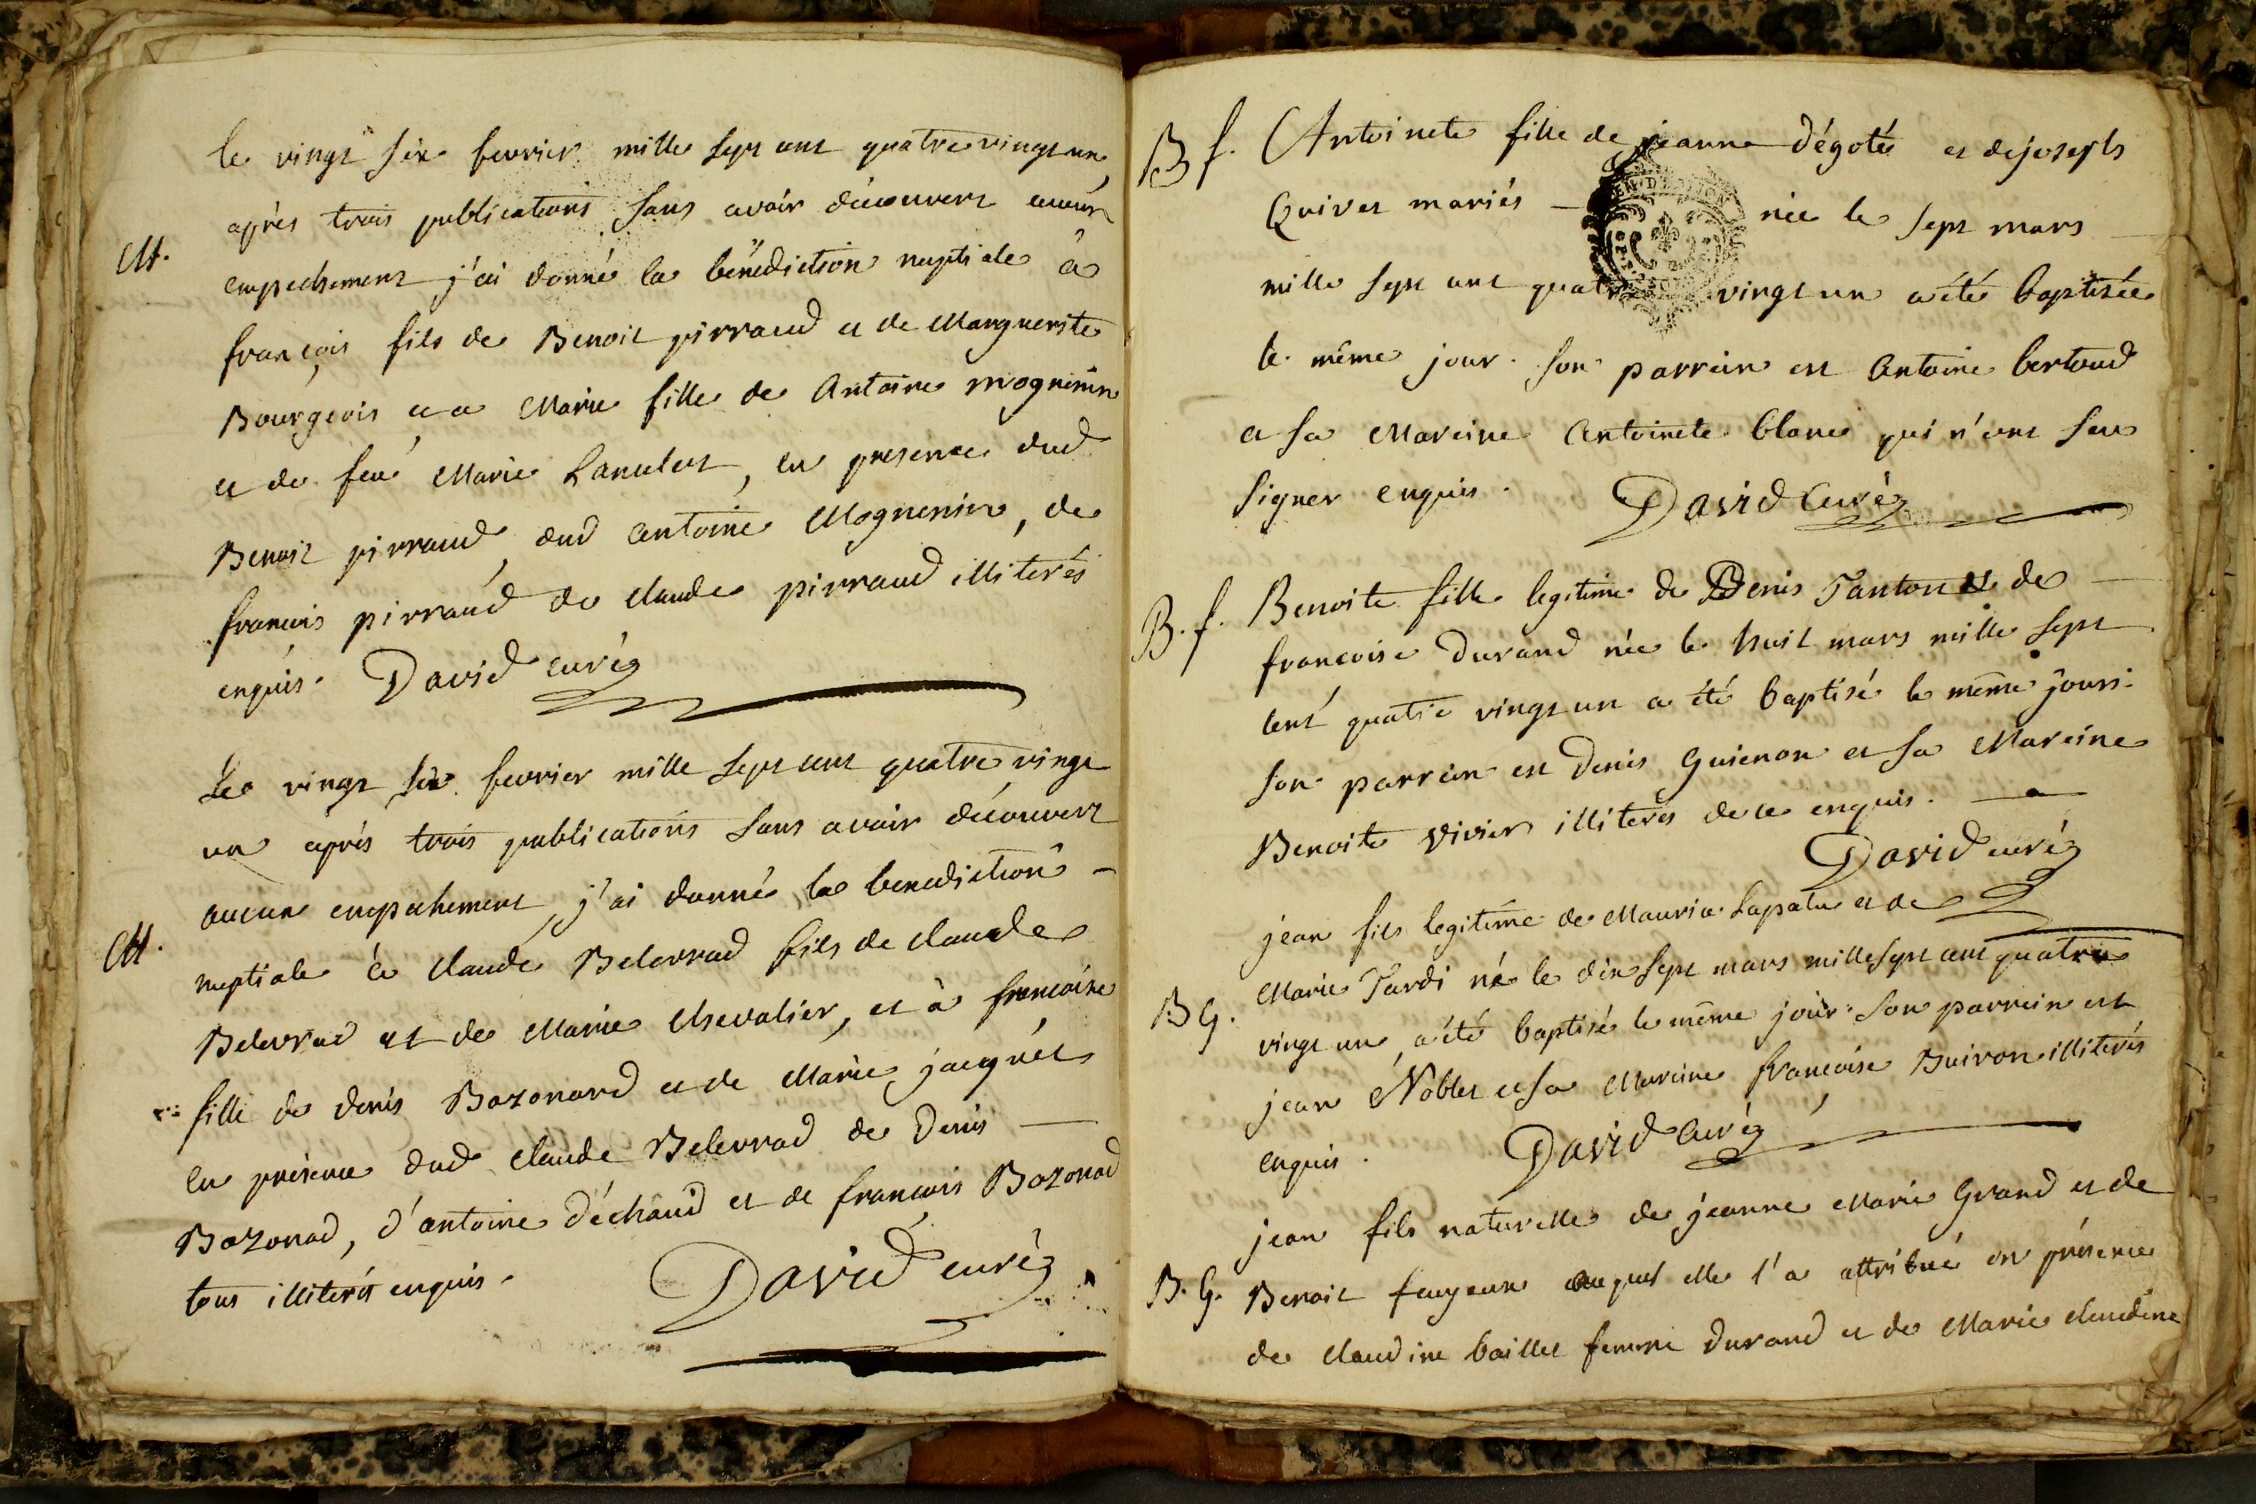 le vingt six fevrier mille sept cent quatre vingt un
après trois publications sans avoir découvert aucun
M.
empechement j'ai donné la bénediction nuptiale à
françois fils de Benoit pirraud et de Marguerite
Bourgeois et a Marie fille de Antoine Mognenin
et de feu Marie Lanulet, en presence dud
Benoit pirraud, dud Antoine Mognenin, de
francois pirraud de claude pirraud illiterés
enquis. David curé
Le vingt six fevrier mille sept cent quatre vingt
un après trois publications sans avoir découvert
aucun empechement, j'ai donné la benediction
M.
nuptiale à claude Beleurad fils de claude
Beleurad et de Marie chevalier, et à francoise
fille de denis Bozonard et de Marie jacquet
en présence dud claude Beleurad de Denis
Bozonad, d'antoine déchaud et de francois Bozonad
tous illiterés enquis.
David curé
B f. Antoinete fille de jeanne dégoté et de joseph
Quivet mariés née le sept mars
mille sept cent quatre vingt un a été baptisée
le même jour. son parrein est Antoine bertoud
et sa Mareine Antoinete blanc qui n'ont seu
signer enquis. David Curé
B. f. Benoite fille legitime de Denis Tanton et de
francoise Durand née le huit mars mille sept
cent quatre vingt un a été baptisé le même jour.
son parrein est Denis Guienon et sa Mareine
Benoite Vivier illiterés de ce enquis.
David curé
jean fils legitime de Maurice Lapalu et de
Marie Tardi né le dix sept mars mille sept cent quatre
B G.
vingt un, a été baptisé le même jour. Son parrein est
jean Noblet et sa Mareine francoise Buiron illiterés
enquis. David Curé
jean fils naturelle de jeanne Marie Grand et de
B. G. Benoit auquel elle l'a attribué en présence
de claudine baillet femme Durand et de Marie claudine